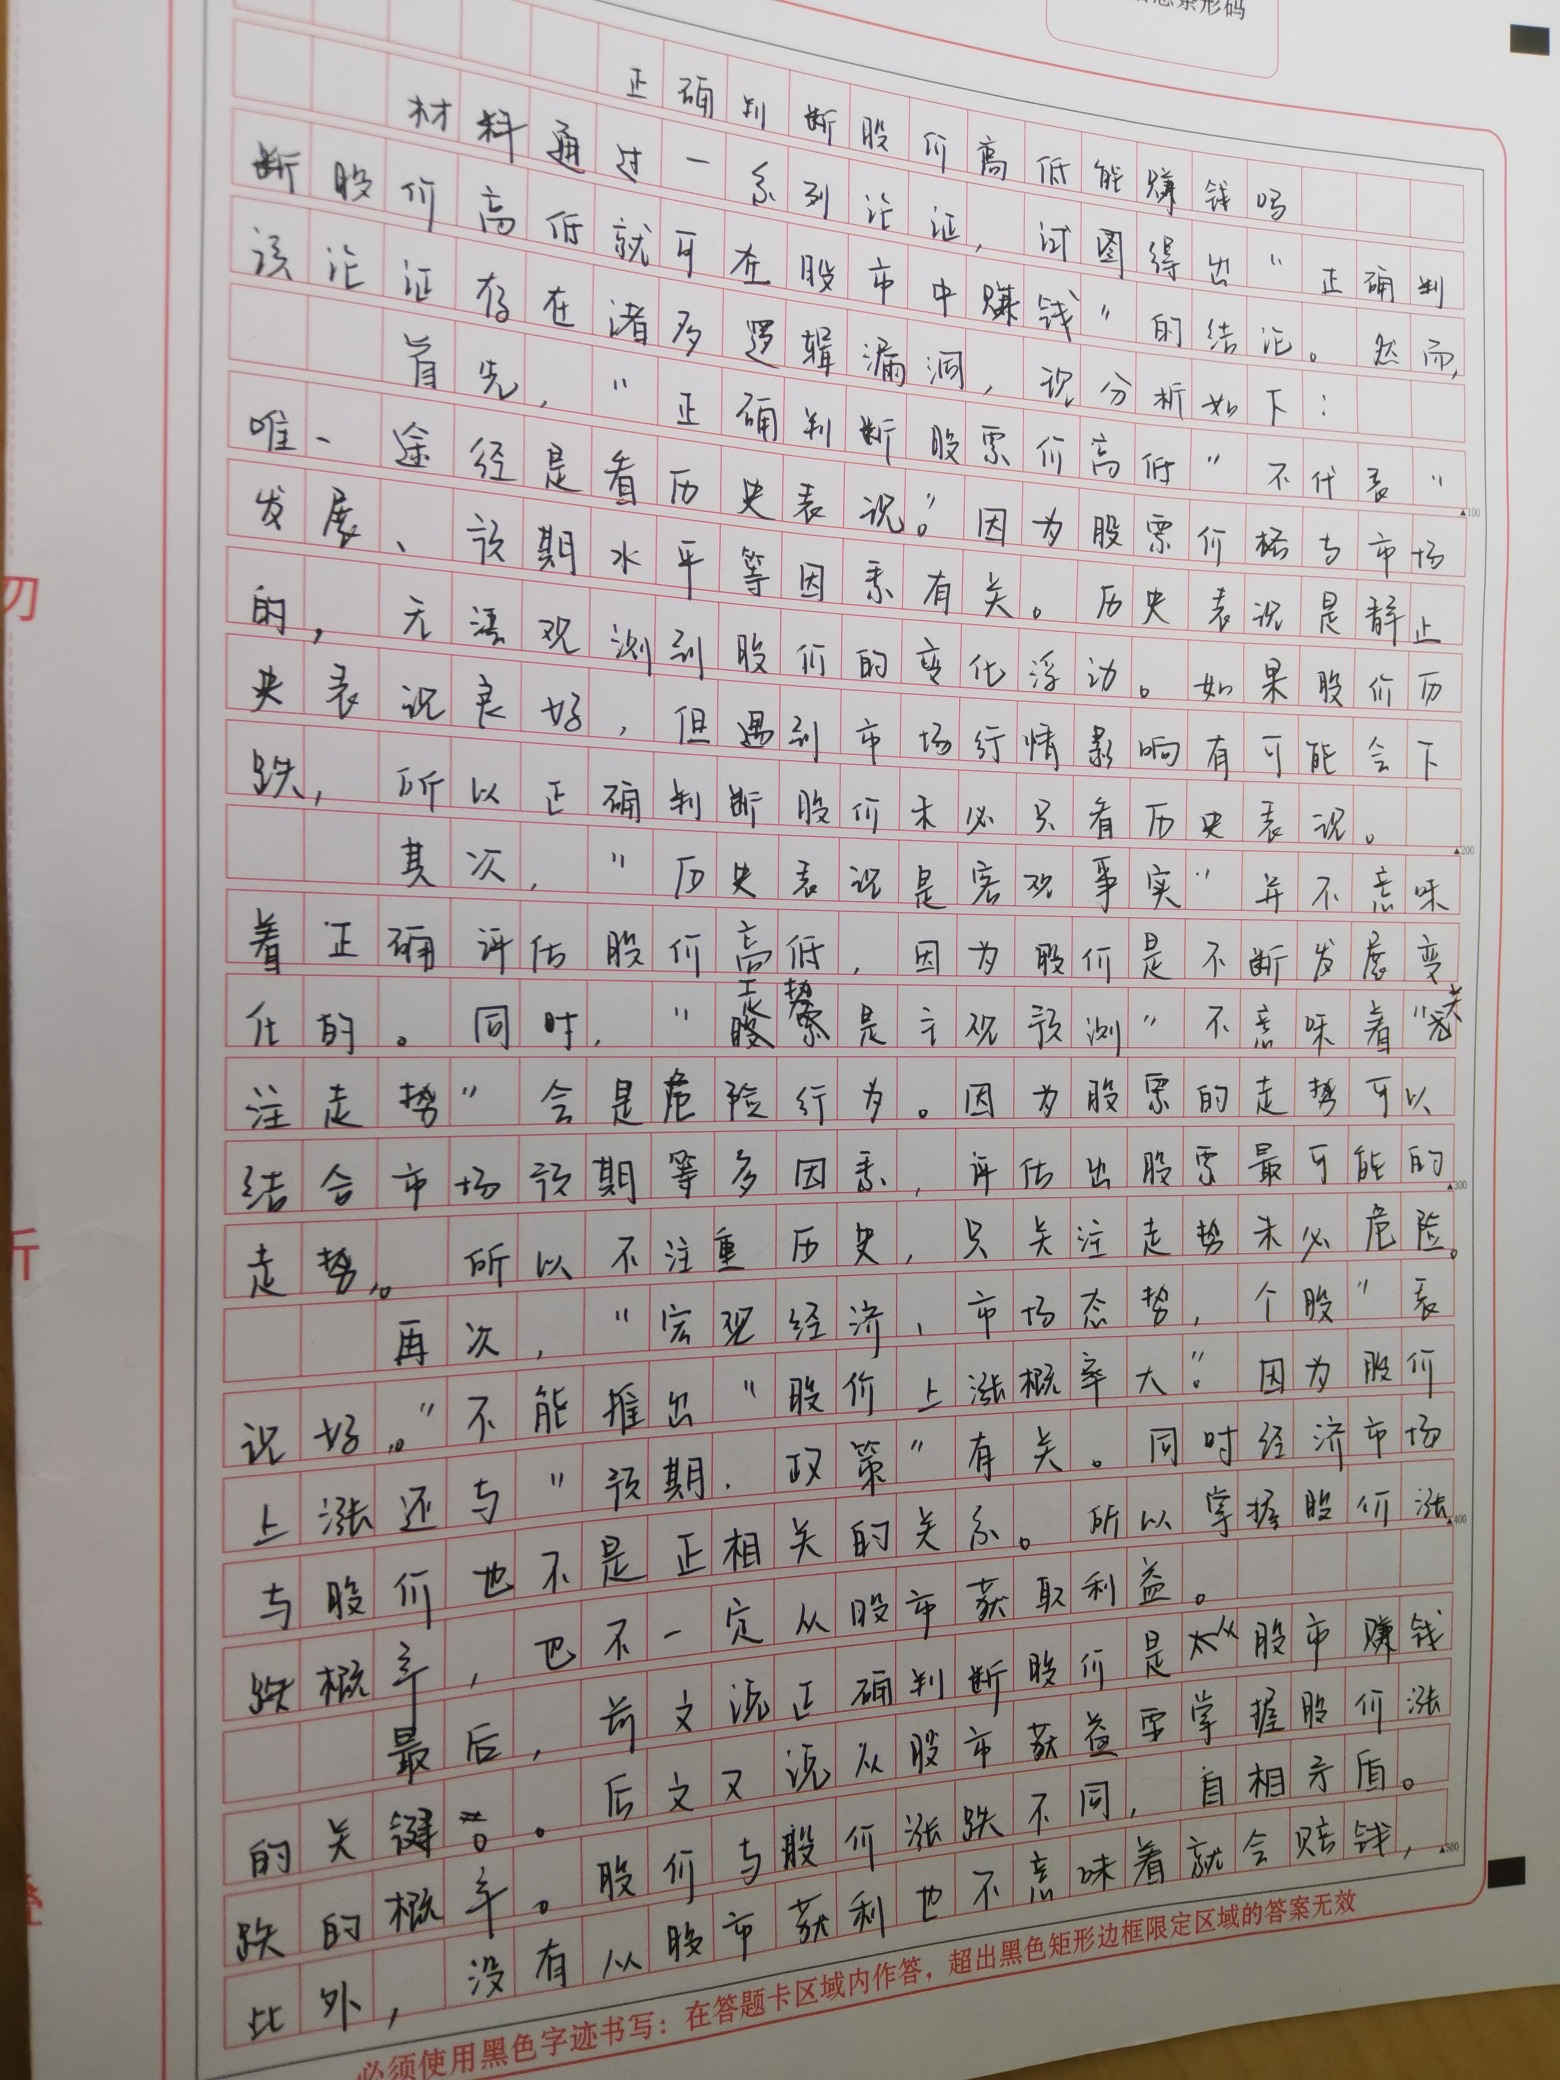 信息条形码
正确判断股价高低能赚钱吗
材料通过一系列论证，试图得出“正确判
断股价高低就可在股市中赚钱”的结论。然而，
该论证存在诸多逻辑漏洞，现分析如下：
首先，“正确判断股票价高低”不代表“
唯一途经是看历史表现”。因为股票价格与市场
发展、预期水平等因素有关。历史表现是静止
的，无法观测到股价的变化浮动。如果股价历
史表现良好，但遇到市场行情影响有可能会下
跌，所以正确判断股价未必只看历史表现。
其次，“历史表现是客观事实”并不意味
着正确评估股价高低，因为股价是不断发展变
化的。同时，“走势是主观预测”不意味着“关
注走势”会是危险行为。因为股票的走势可以
结合市场预期等多因素，评估出股票最可能的
走势。所以不注重历史，只关注走势未必危险。
再次，“宏观经济，市场态势，个股”表
现好。”不能推出“股价上涨概率大”。因为股价
上涨还与“预期、政策”有关。同时经济市场
与股价也不是正相关的关系。所以掌握股价涨
跌概率，也不一定从股市获取利益。
最后，前文说正确判断股价是从股市赚钱
的关键。后文又说从股市获益要掌握股价涨
跌的概率。股价与股价涨跌不同，自相矛盾。
比外，没有从股市获利也不意味着就会赔钱，
▲100
▲200
▲300
▲400
▲500
必须使用黑色字迹书写：在答题卡区域内作答，超出黑色矩形边框限定区域的答案无效